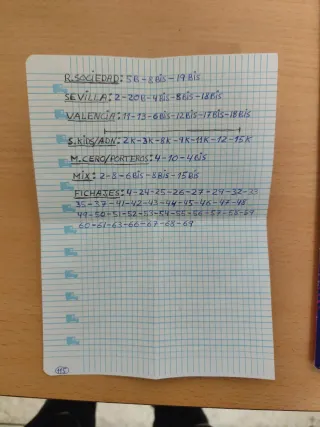 R.SOCIEDAD: 5B-8Bis-19Bis
SEVILLA: 2-20B-4Bis-8Bis-18Bis
VALENCIA: 11-13-6Bis-12Bis-17Bis-18Bis
S.KIDS/ADN: 2K-3K-8K-9K-11K-12-15K
M.CERO/PORTEROS: 4-10-4Bis
MIX: 2-8-6Bis-8Bis-15Bis
FICHAJES: 4-24-25-26-27-29-32-33
35-37-41-42-43-44-45-46-47-48
49-50-51-52-53-54-55-56-57-58-59
60-61-63-66-67-68-69